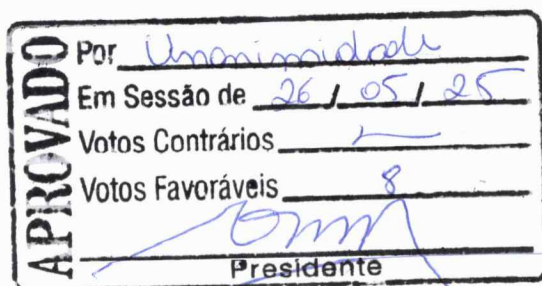 APROVADO
Por Unanimidade
Em Sessão de 26 / 05 / 25
Votos Contrários —
Votos Favoráveis 8
Presidente